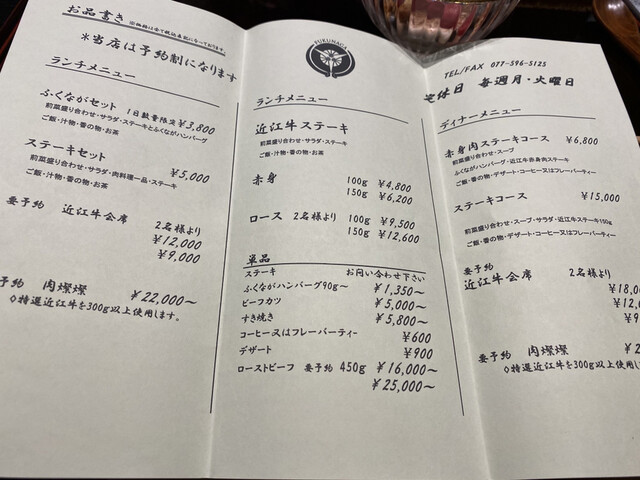 お品書き ※価格は全て税込表記になっております。
*当店は予約制になります
ランチメニュー
ふくながセット 1日数量限定¥3,800
前菜盛り合わせ・サラダ・ステーキとふくながハンバーグ
ご飯・汁物・香の物・お茶
ステーキセット ¥5,000
前菜盛り合わせ・サラダ・肉料理一品・ステーキ
ご飯・汁物・香の物・お茶
要予約 近江牛会席 2名様より
¥12,000
¥9,000
予約 肉燦燦 ¥22,000~
◇特選近江牛を300g以上使用します。
FUKUNAGA
ランチメニュー
近江牛ステーキ
前菜盛り合わせ・サラダ・ステーキ
ご飯・汁物・香の物・お茶
赤身 100g ¥4,800
150g ¥6,200
ロース 2名様より 100g ¥9,500
150g ¥12,600
単品
ステーキ お問い合わせ下さい
ふくながハンバーグ90g~ ¥1,350~
ビーフカツ ¥5,000~
すき焼き ¥5,800~
コーヒー又はフレーバーティー ¥600
デザート ¥900
ローストビーフ 要予約 450g ¥16,000~
¥25,000~
TEL/FAX 077-596-5125
定休日 毎週月・火曜日
ディナーメニュー
赤身肉ステーキコース ¥6,800
前菜盛り合わせ・スープ
ふくながハンバーグ・近江牛赤身肉ステーキ
ご飯・香の物・デザート・コーヒー又はフレーバーティー
ステーキコース ¥15,000
前菜盛り合わせ・スープ・サラダ・近江牛ステーキ150g
ご飯・香の物・デザート・コーヒー又はフレーバーティー
要予約
近江牛会席 2名様より
¥18,0
¥12,0
¥9
要予約 肉燦燦 ¥2
◇特選近江牛を300g以上使用し